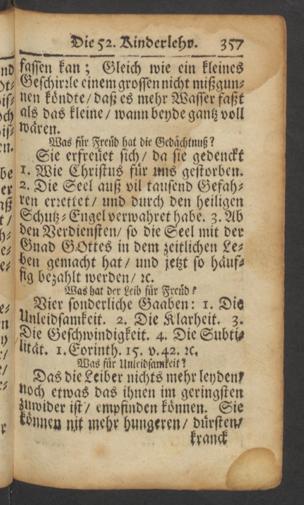 Die 52. Kinderlehr. 357
fassen kan; Gleich wie ein kleines
Geschirꝛle einem grossen nicht mißgun-
nen köndte/ daß es mehr Wasser faßt
als das kleine/ wann beyde gantz voll
wären.
Was für Freüd hat die Gedächtnuß?
Sie erfreuet sich/ da sie gedenckt
1. Wie Christus für uns gestorben.
2. Die Seel auß vil tausend Gefah-
ren errettet/ und durch den heiligen
Schutz-Engel verwahret habe. 3. Ab
den Verdiensten/ so die Seel mit der
Gnad GOttes in dem zeitlichen Le-
ben gemacht hat/ und jetzt so häuf-
fig bezahlt werden/ ꝛc.
Was hat der Leib für Freüd?
Vier sonderliche Gaaben: 1. Die
Unleidsamkeit. 2. Die Klarheit. 3.
Die Geschwindigkeit. 4. Die Subti-
lität. 1. Corinth. 15. v. 42. ꝛc.
Was für Unleidsamkeit?
Das die Leiber nichts mehr leyden/
noch etwas das ihnen im geringsten
zuwider ist/ empfinden können. Sie
können nit mehr hungeren/ dürsten/
kranck